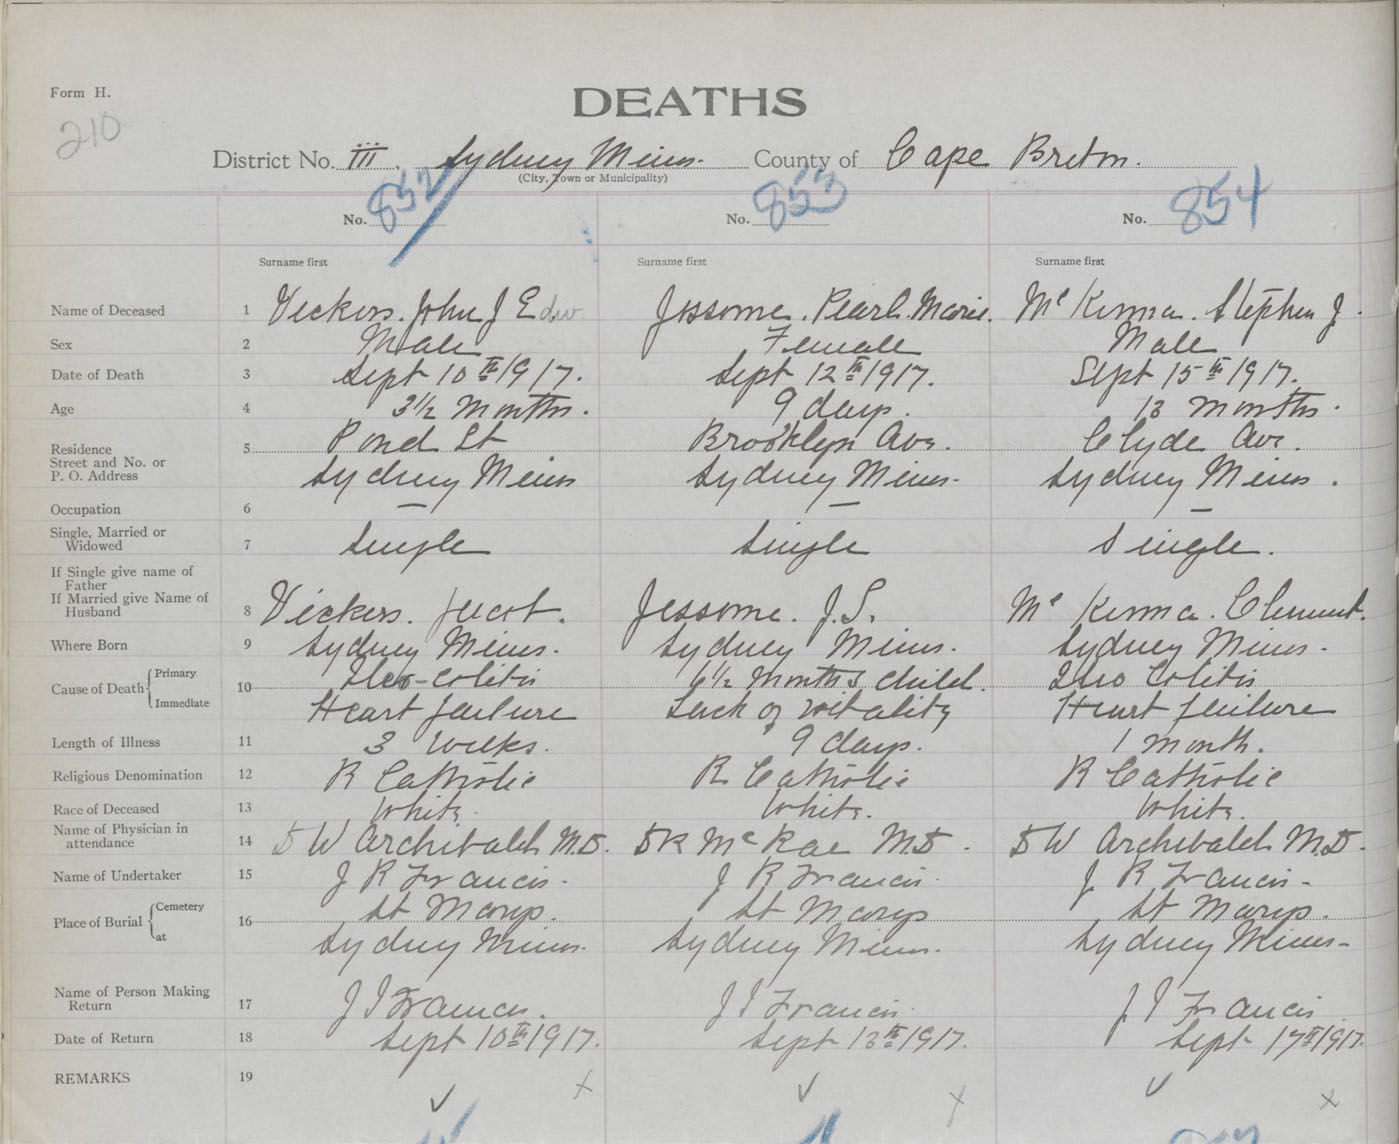 Form H.
DEATHS
210
District No. III. Sydney Mines. County of Cape Breton.
(City, Town or Municipality)
No. 852 No. 853 No. 854
Surname first Surname first Surname first
Name of Deceased 1 Vickers. John J Edw Jessome. Pearl Marie. Mc Kinnon. Stephen J.
Sex 2 Male Female Male
Date of Death 3 Sept 10th 1917. Sept 12th 1917. Sept 15th 1917.
Age 4 3½ months. 9 days. 13 months.
Residence 5 Pond St Brooklyn Ave. Clyde Ave.
Street and No. or
P. O. Address Sydney Mines Sydney Mines. Sydney Mines.
Occupation 6 — — —
Single, Married or
Widowed 7 Single Single Single.
If Single give name of
Father
If Married give Name of
Husband 8 Vickers. Jessome. J.S. Mc Kinnon. Clement.
Where Born 9 Sydney Mines. Sydney Mines. Sydney Mines.
Cause of Death Primary 10 Ileo-colitis 6½ months child. Ileo Colitis
Immediate Heart failure Lack of vitality Heart failure
Length of Illness 11 3 weeks. 9 days. 1 month.
Religious Denomination 12 R Catholic R Catholic R Catholic
Race of Deceased 13 White. White. White.
Name of Physician in
attendance 14 D W Archibald M.D. D K McRae M.D. D W Archibald M.D.
Name of Undertaker 15 J R Francis. J R Francis. J R Francis.
Place of Burial Cemetery 16 St Marys. St Marys St Marys.
at Sydney Mines. Sydney Mines. Sydney Mines.
Name of Person Making
Return 17 J I Francis. J I Francis. J I Francis
Date of Return 18 Sept 10th 1917. Sept 13th 1917. Sept 17th 1917.
REMARKS 19